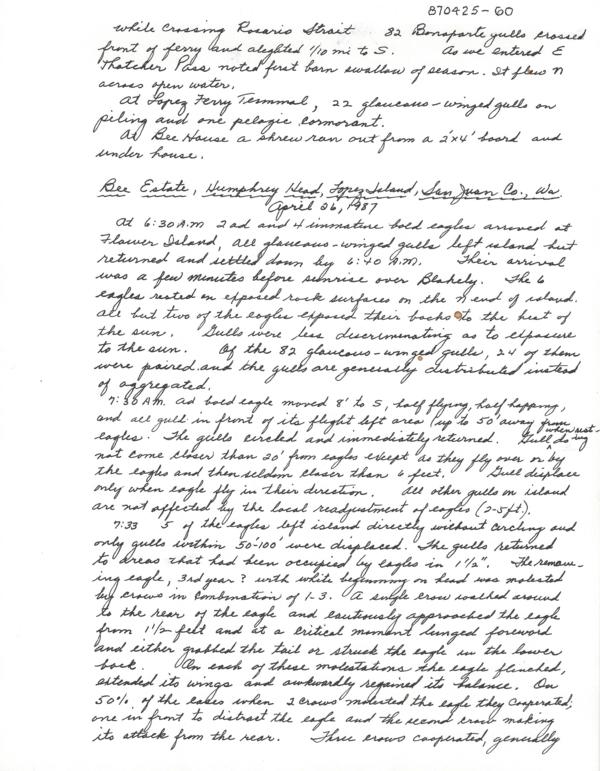 870425-60
while crossing Rosario Strait 82 Bonaparte gulls crossed
front of ferry and aleghted 1/10 mi to S. As we entered E
Thatcher Pass noted first barn swallow of season. It flew N
across open water.
At Lopez Ferry Terminal, 22 glaucous-winged gulls on
piling and one pelagic cormorant.
At Bee House a shrew ran out from a 2'x4' board and
under house.
Bee Estate, Humphrey Head, Lopez Island, San Juan Co., Wa.
April 26, 1987
At 6:30 A.M 2 ad and 4 immature bald eagles arrived at
Flower Island, all glaucous-winged gulls left island but
returned and settled down by 6:40 A.M. Their arrival
was a few minutes before sunrise over Blakely. The 6
eagles rested on exposed rock surfaces on the N end of island.
All but two of the eagles exposed their backs to the heat of
the sun. Gulls were less discriminating as to exposure
to the sun. Of the 82 glaucous-winged gulls, 24 of them
were paired and the gulls are generally distributed instead
of aggregated.
7:30 A.M. ad bald eagle moved 8' to S, half flying, half hopping,
and all gulls in front of its flight left area (up to 50' away from
eagles. The gulls circled and immediately returned. Gulls do when rest-
ing
not come closer than 20' from eagles except as they fly over or by
the eagles and then seldom closer than 6 feet. Gulls displace
only when eagle fly in their direction. All other gulls on island
are not affected by the local readjustment of eagles (2-5 ft).
7:33 5 of the eagles left island directly without circling and
only gulls within 50-100' were displaced. The gulls returned
to areas that had been occupied by eagles in 1½". The remain-
ing eagle, 3rd year? with white beginning on head was molested
by crows in combination of 1-3. A single crow walked around
to the rear of the eagle and cautiously approached the eagle
from 1½ feet and at a critical moment lunged foreword
and either grabbed the tail or struck the eagle in the lower
back. On each of these molestations the eagle flinched,
extended its wings and awkwardly regained its balance. On
50% of the cases when 2 crows molested the eagle they cooperated;
one in front to distract the eagle and the second crow making
its attack from the rear. Three crows cooperated, generally